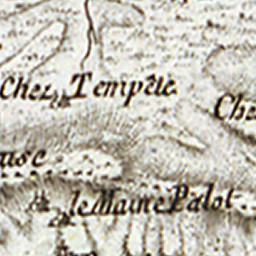 Chez Tempête
Che
le Maine Palot